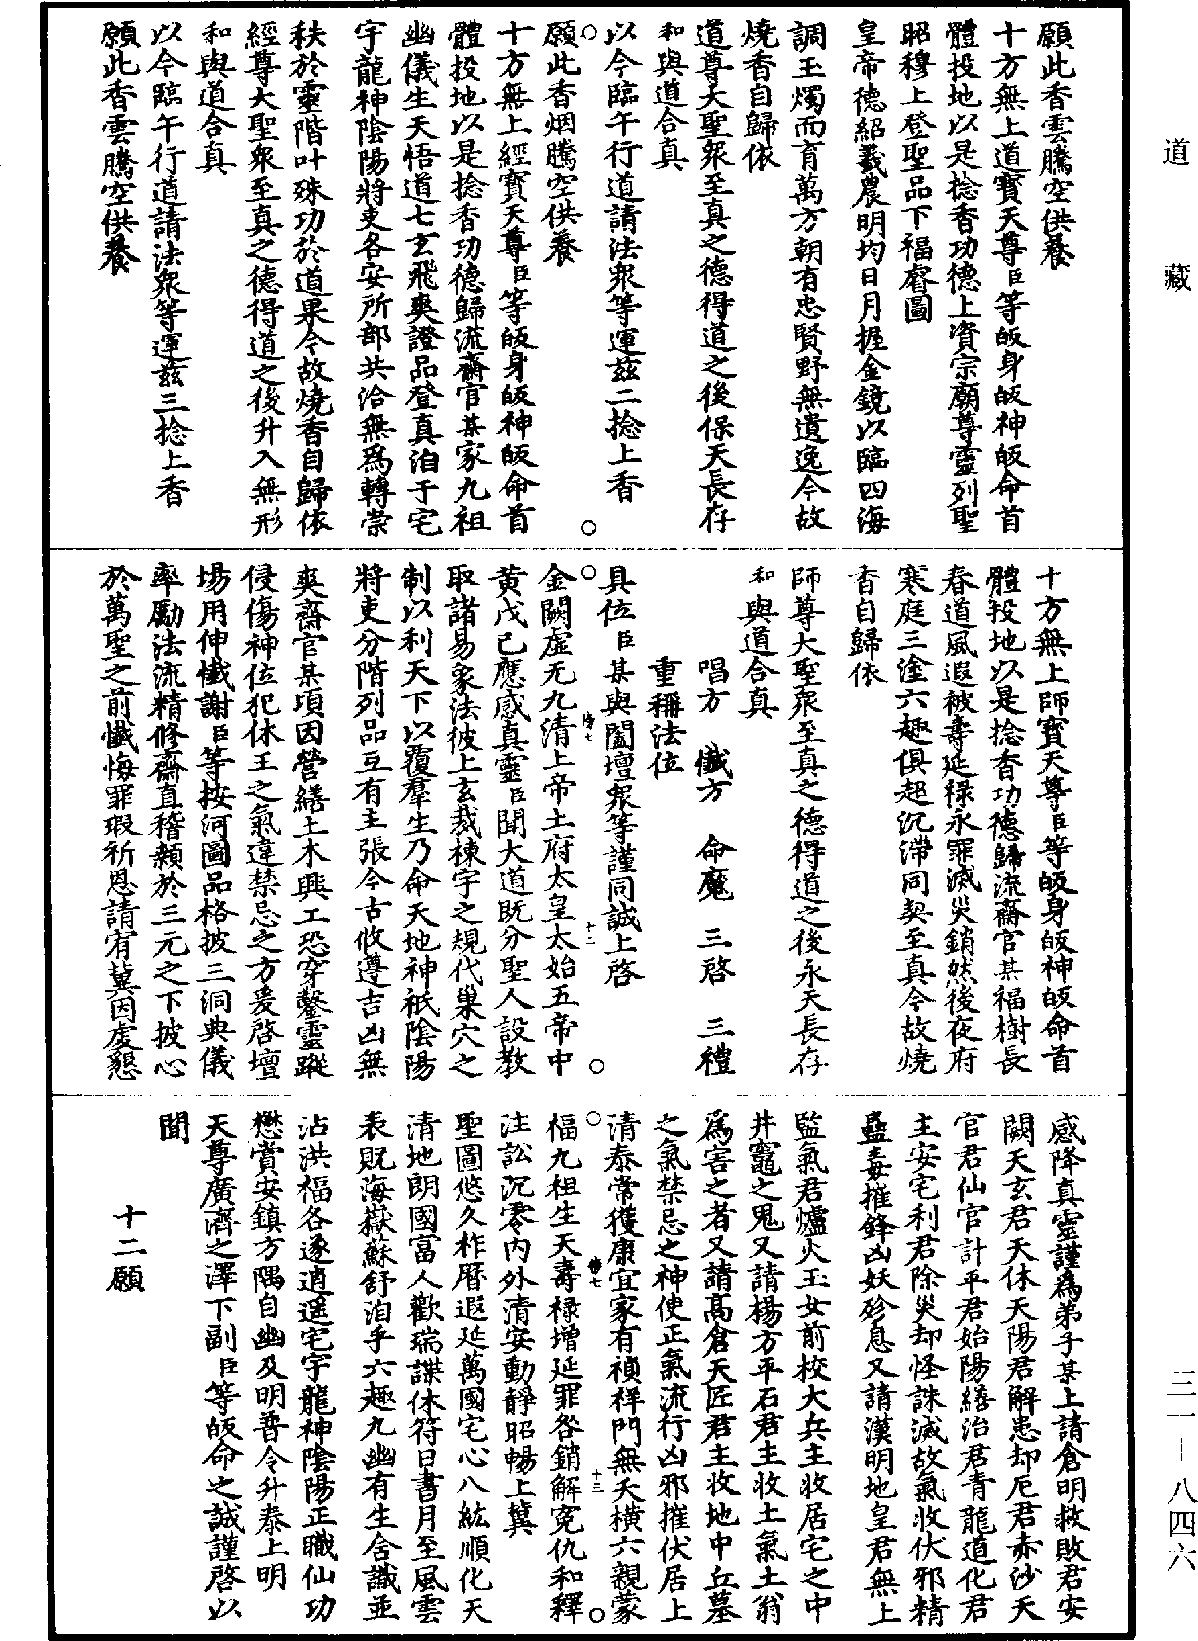 道藏
三一—八四六
願此香雲騰空供養
十方無上道寶天尊臣等皈身皈神皈命首
體投地以是捻香功德上資宗廟尊靈列聖
昭穆上登聖品下福睿圖
皇帝德紹羲農明均日月握金鏡以臨四海
調玉燭而育萬方朝有忠賢野無遺逸今故
燒香自歸依
道尊大聖眾至真之德得道之後保天長存
和與道合真
以今臨午行道請法眾等運茲二捻上香
願此香烟騰空供養
十方無上經寶天尊臣等皈身皈神皈命首
體投地以是捻香功德歸流齋官某家九祖
幽儀生天悟道七玄飛爽證品登真洎于宅
宇龍神陰陽將吏各安所部共洽無為轉崇
秩於靈階叶殊功於道果今故燒香自歸依
經尊大聖眾至真之德得道之後升入無形
和與道合真
以今臨午行道請法眾等運茲三捻上香
願此香雲騰空供養
十方無上師寶天尊臣等皈身皈神皈命首
體投地以是捻香功德歸流齋官某福樹長
春道風遐被壽延祿永罪滅災銷然後夜府
寒庭三塗六趣俱起沉滯同契至真今故燒
香自歸依
師尊大聖眾至真之德得道之後永天長存
和與道合真
唱方 懺方 命魔 三啓 三禮
重稱法位
具位臣某與闔壇眾等謹同誠上啓
金闕虛无九清上帝土府太皇太始五帝中
黃戊己應感真靈臣聞大道既分聖人設教
取諸易象法彼上玄裁棟宇之規代巢穴之
制以利天下以覆羣生乃命天地神祇陰陽
將吏分階列品互有主張今古攸遵吉凶無
爽齋官某頃因營繕土木興工恐穿鑿靈蹤
侵傷神位犯休王之氣違禁忌之方爰啓壇
場用伸懺謝臣等按河圖品格披三洞典儀
率勵法流精修齋直稽顙於三元之下披心
於萬聖之前懺悔罪瑕祈恩請宥冀因虔懇
感降真靈謹為弟子某上請倉明救敗君安
闕天玄君天休天陽君解患却厄君赤沙天
官君仙官計平君始陽繕治君青龍道化君
主安宅利君除災却怪誅滅故氣收伏邪精
蠱毒摧鋒凶妖殄息又請漢明地皇君無上
監氣君爐火玉女前校大兵主收居宅之中
井竈之鬼又請楊方平石君主收土氣土翁
為害之者又請高倉天匠君主收地中丘墓
之氣禁忌之神使正氣流行凶邪摧伏居上
清泰常獲康宜家有禎祥門無夭橫六親蒙
福九祖生天壽祿增延罪咎銷解冤仇和釋
注訟沉零內外清安動靜昭暢上冀
聖圖悠久祚曆遐延萬國宅心八紘順化天
清地朗國富人歡瑞諜休符日書月至風雲
表貺海嶽蘇舒洎乎六趣九幽有生含識並
沾洪福各遂逍遥宅宇龍神陰陽正職仙功
懋賞安鎮方隅自幽及明普令升泰上明
天尊廣濟之澤下副臣等皈命之誠謹啓以
聞
十二願